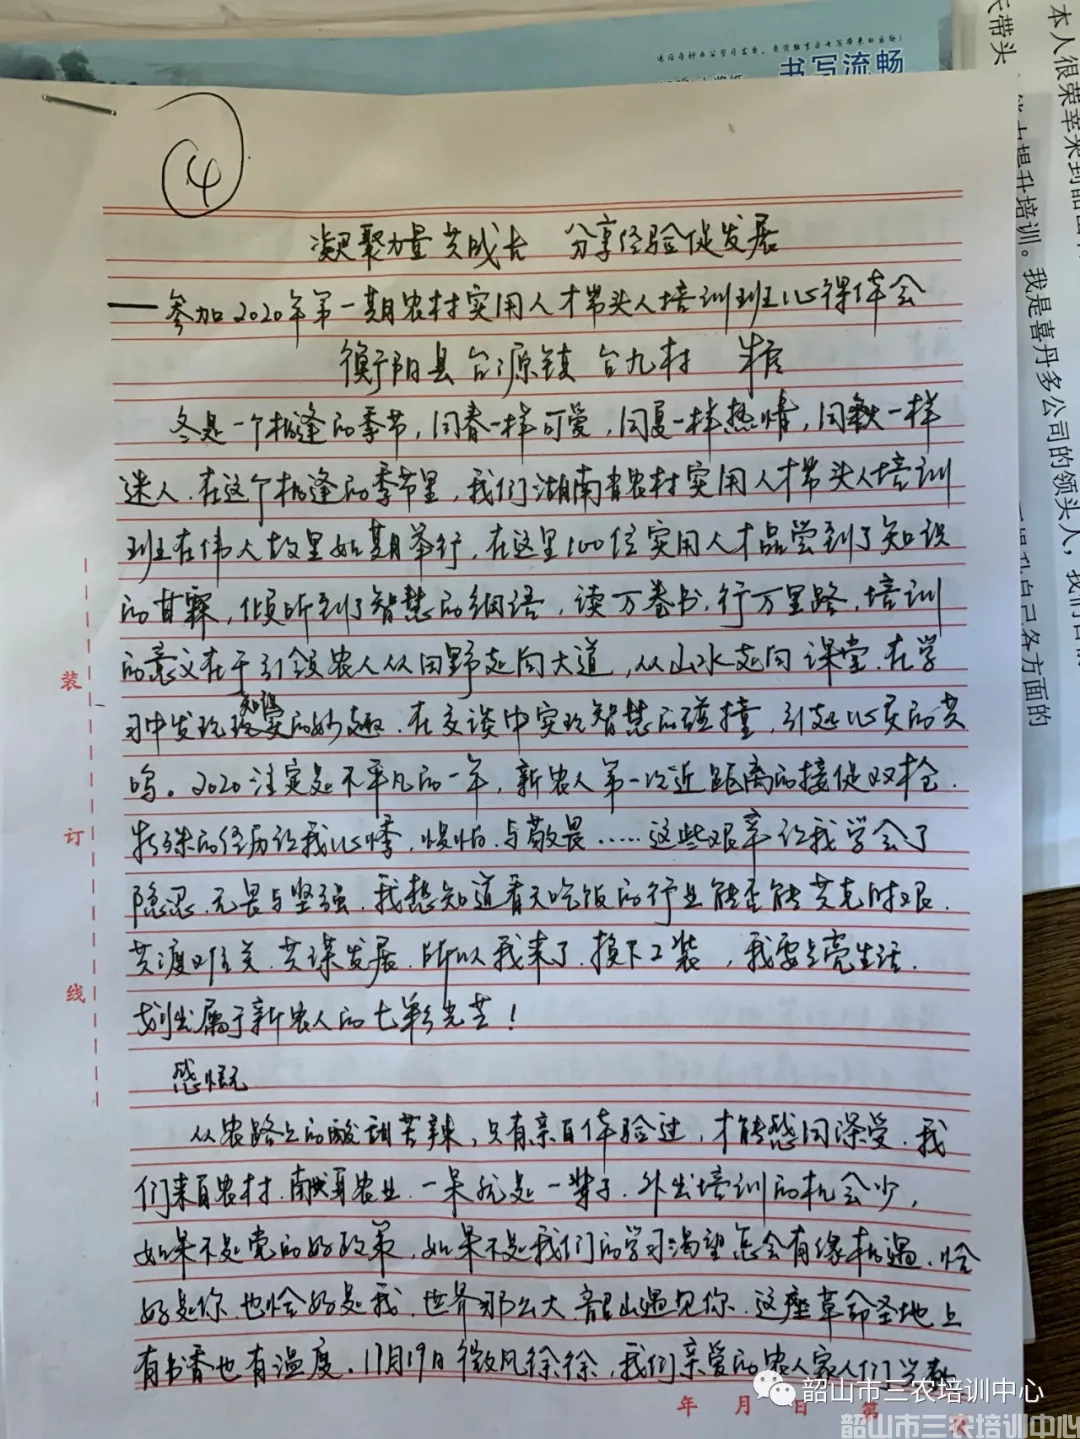 书写流畅
本人很荣幸来到韶山
氏带头
能力提升培训。我是喜丹多公司的领头人，我们合作
提升自己各方面的
14
凝聚力量共成长 分享经验促发展
——参加2020年第一期农村实用人才带头人培训班心得体会
衡阳县台源镇台九村
冬是一个相逢的季节，同春一样可爱，同夏一样热情，同秋一样
迷人。在这个相逢的季节里，我们湖南省农村实用人才带头人培训
班在伟人故里如期举行，在这里100位实用人才品尝到了知识
的甘霖，倾听到了智慧的细语，读万卷书，行万里路，培训
的意义在于引领农人从田野走向大道，从山水走向课堂，在学
习中发现知识的妙趣，在交谈中实现智慧的碰撞，引起心灵的共
鸣。2020注定是不平凡的一年，新农人第一次近距离的接促双枪，
特殊的经历让我心悸，惧怕，与敬畏……这些艰辛让我学会了
隐忍，无畏与坚强，我想知道看天吃饭的行业能否能共克时艰，
共渡难关，共谋发展，所以我来了，换下工装，我要点亮生活，
划出属于新农人的七彩光芒！
感慨
从农路上的酸甜苦辣，只有亲自体验过，才能感同深受，我
们来自农村，献身农业，一呆就是一辈子，外出培训的机会少，
如果不是党的好政策，如果不是我们的学习渴望怎会有缘相遇，恰
好是你，也恰好是我，世界那么大，韶山遇见你，这座革命圣地上
有书香也有温度，11月19日微风徐徐，我们亲爱的农人家人们
装
订
线
年 月 日 第
韶山市三农培训中心
韶山市三农培训中心